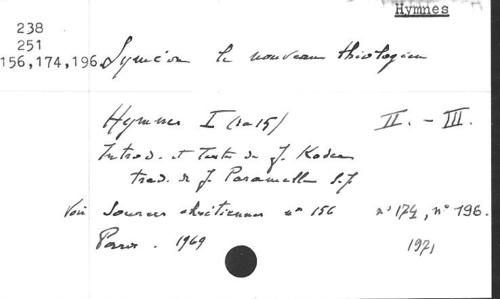 Hymnes
238
251
156,174,196
Syméon le nouveau théologien
Hymnes I (1a15) II. - III.
Introd. et Texte de J. Koder
trad. de J. Paramelle S.J
Voir Sources chrétiennes n° 156 n° 174, n° 196.
Paris. 1969 1971